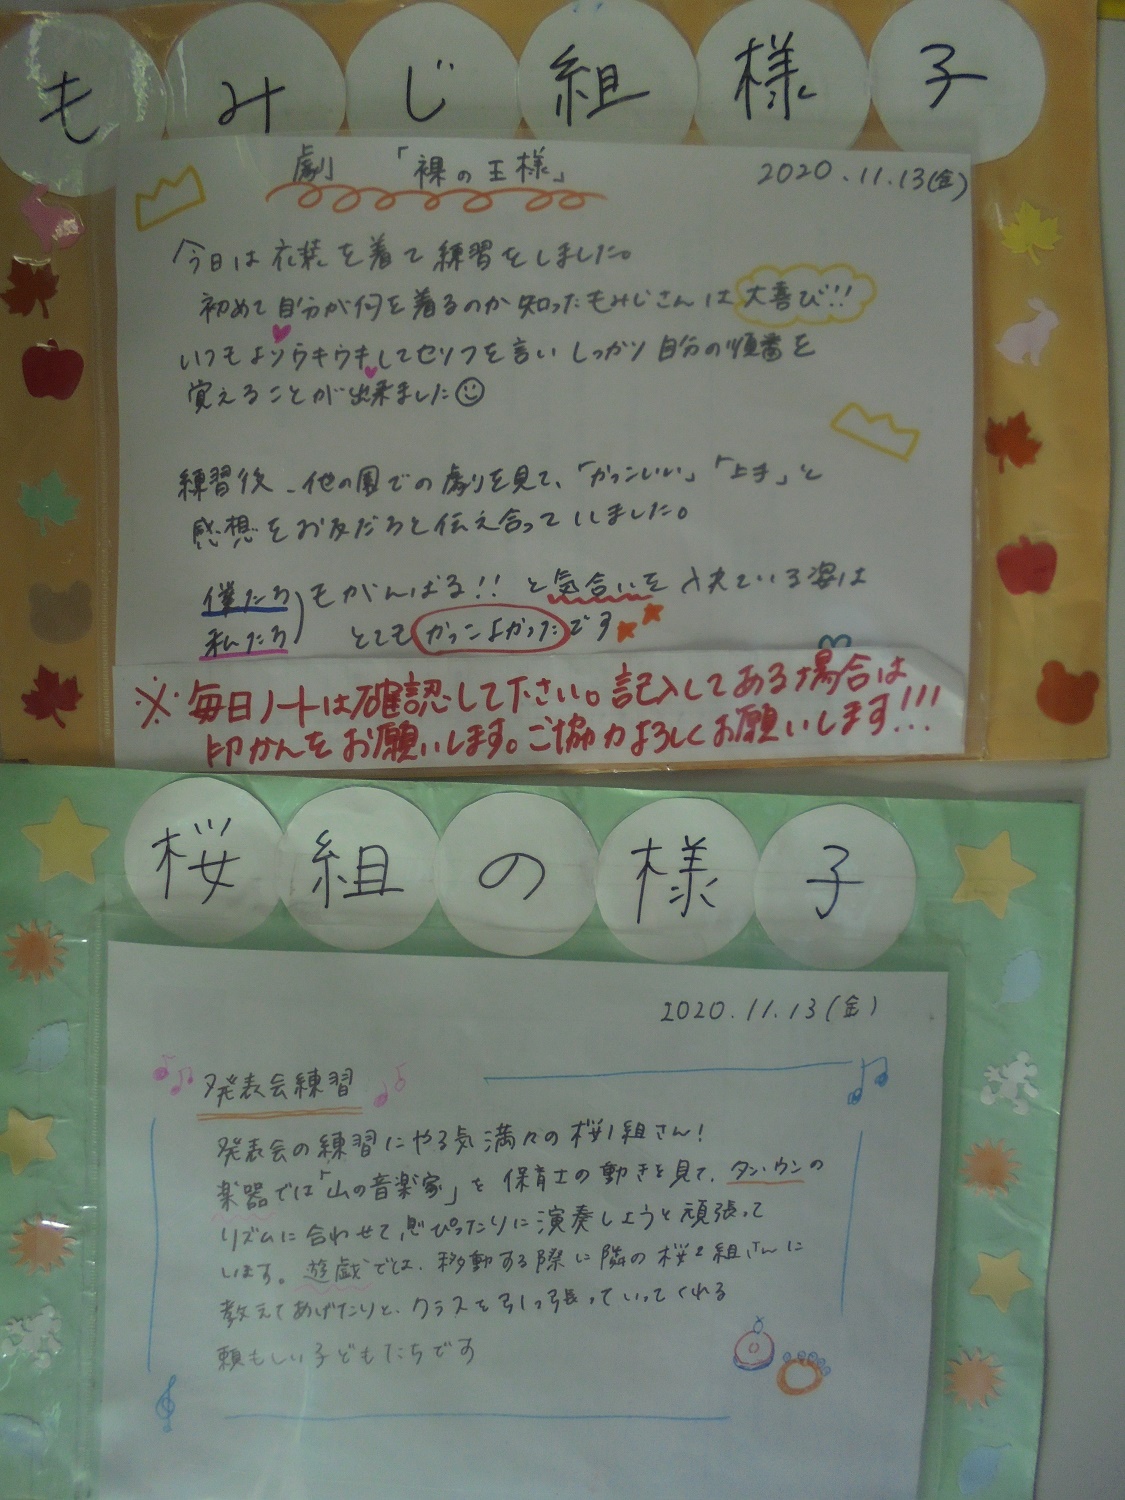 もみじ組様子
劇 「裸の王様」
2020.11.13(金)
今日は衣装を着て練習をしました。
初めて自分が何を着るのか知ったもみじさんは大喜び!!
いつもよりウキウキしてセリフを言いしっかり自分の順番を
覚えることが出来ました
練習後、他の園での劇を見て、「かっこいい」「上手」と
感想をお友だちと伝え合っていしました。
僕たち
私たち
もがんばる!! と気合いを入れている姿は
とてもかっこよかったです
※毎日ノートは確認して下さい。記入してある場合は
印かんをお願いします。ご協力よろしくお願いします!!!
桜組の様子
2020.11.13(金)
発表会練習
発表会の練習にやる気満々の桜1組さん!
楽器では「山の音楽家」を保育士の動きを見て、タン、ウンの
リズムに合わせて息ぴったりに演奏しようと頑張って
います。遊戯では、移動する際に隣の桜2組さんに
教えてあげたりと、クラスを引っ張っていってくれる
頼もしい子どもたちです